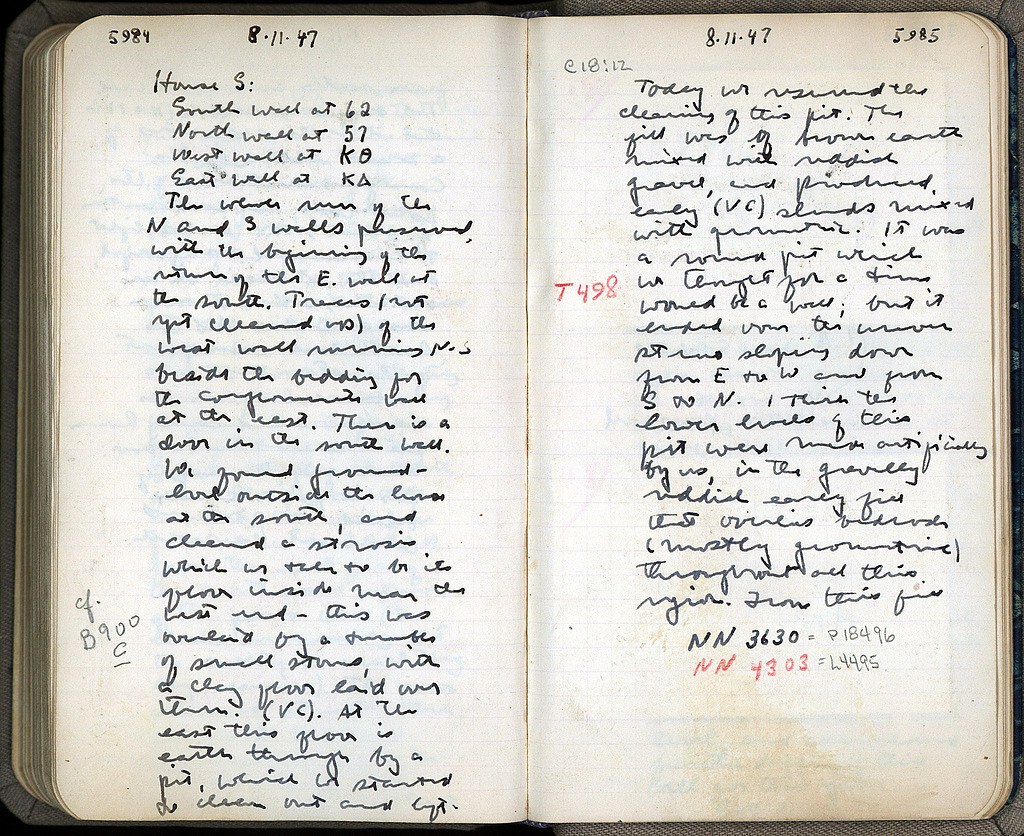 5984
8·11·47
House S:
South wall at 62
North wall at 57
West wall at ΚΘ
East wall at ΚΔ
The wever run of the
N and S walls preserved,
with the beginning of the
return of the E. wall at
the south. Traces (not
yet cleaned up) of the
west wall running N-S
beside the bedding for
the wall
at the east. There is a
door in the south wall.
We found ground-
level outside the house
at the south, and
cleaned a strosis
which we take to be its
floor inside near the
west end - this was
overlaid by a number
of small stones, with
a clay floor laid over
them. (VC). At the
east this floor is
earth through by a
pit, which we started
to clean out and left.
cf.
B900
C
8·11·47
5985
C18:12
Today we resumed the
cleaning of this pit. The
fill was of brown earth
mixed with reddish
gravel, and produced
early (VC) sherds mixed
with geometric. It was
a round pit which
we thought for a time
would be a well, but it
ended over the uneven
stereo sloping down
from E to W and from
S to N. I think the
lower levels of this
pit were made artificially
by us, in the gravelly
reddish early fill
that overlies bedrock
(mostly geometric)
throughout all this
region. From this fill
T498
NN 3630 = P18496
NN 4303 = L4495